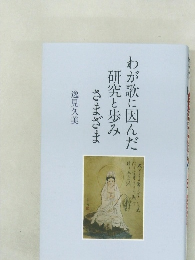 わが歌に因んだ
研究と歩み
さまざま
逸見久美